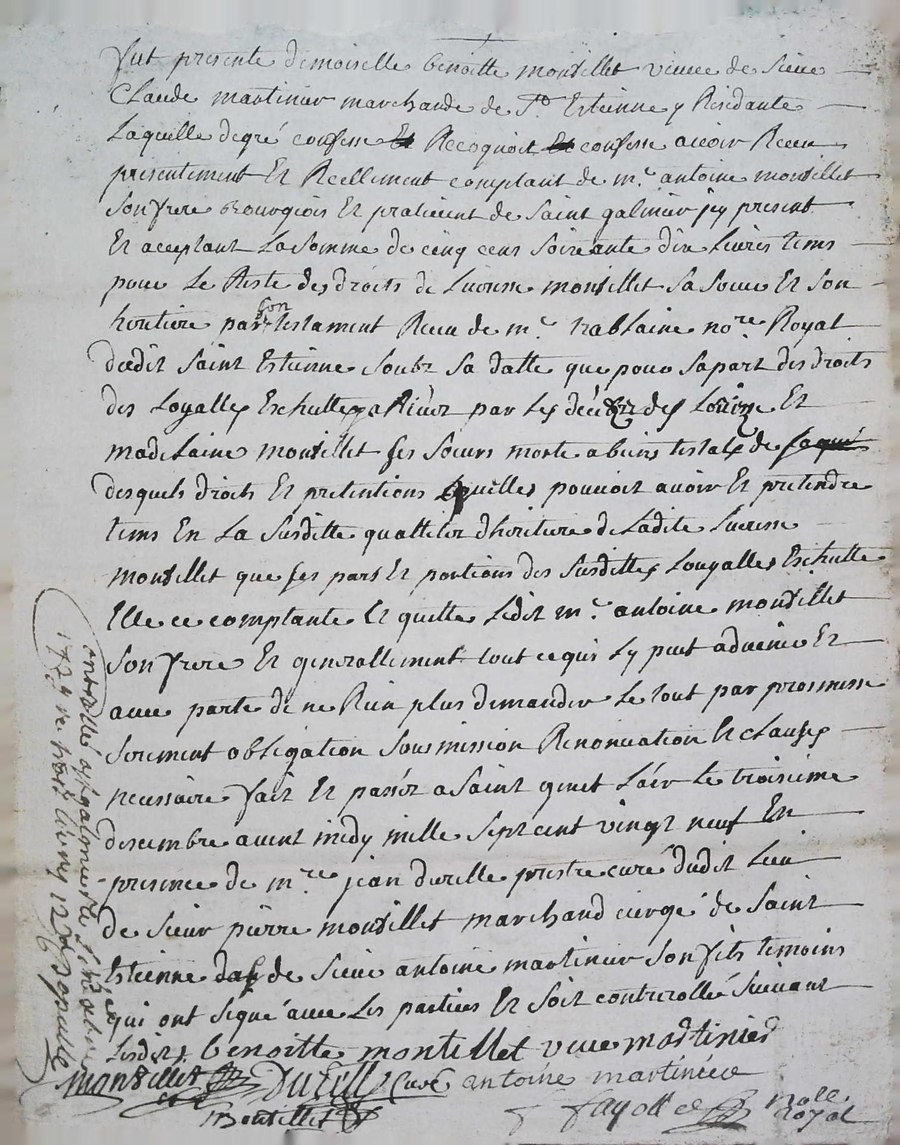 fut presente demoiselle benoitte montellet veuve de sieur
Claude martinier marchande de St. Estienne y Residante
Laquelle degré confesse Et Recognoit Et confesse avoir Receu
presentement Et Reellement comptant de mr. antoine montellet
Son frere Bourgeois Et praticient de Saint galmier jcy present
Et aceptant La Somme de cinq cens Soixante dix Livres tems
pour Le Reste des droits de Lucresse montellet Sa Soeur Et Son
heritiere par son testament Receu de mr. nore Royal
dudit Saint Estienne Soubz Sa datte que pour Sa part des droits
des Loyalles Eschuttes par Les de Louize Et
madelaine montellet ses Soeurs morte abeins testatz de
desquels droits Et pretentions quelles pouvoit avoir Et pretendre
tems En La Susditte qualitter dheritiere de Ladite Lucresse
montellet que ses pars Et portions des Susdittes Louyalles Eschutte
Elle ce comptante Et quitte Ledit mr. antoine montellet
Son frere Et generallement tout ce qui Ly peut advenir Et
avec parte de ne Rien plus demander Le tout par prosmesse
Serement obligation Sousmission Renonciation Et clauses
necessaire fait Et passéz a Saint genet Lér Le troisieme
descembre avent midy mille Sept cent vingt neuf En
presence de mre. jean durelle prestre curé dudit Lieu
de Sieur pierre montellet marchand de Saint
Estienne de Sieur antoine martinier Son fils temoins
qui ont Signé avec Les parties Et Soit controllé Suivant
Lesdits benoitte montellet veuve martinier
montellet Durelle Curé antoine martinier
Montellet
fayolle nore.
Royal
controllé a St galmier le decembre
1729 Receu livres 12 s